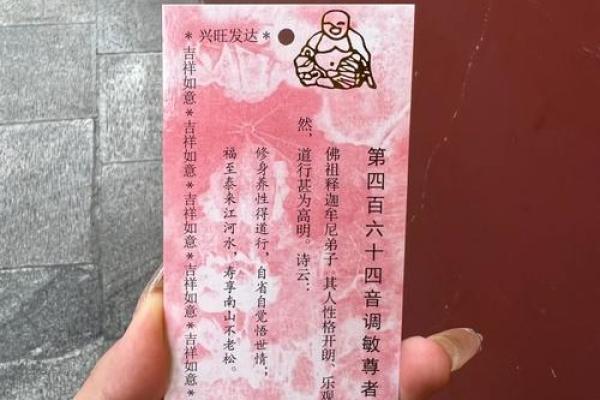 *兴旺发达*
第四百六十四音调敏尊者
佛祖释迦牟尼弟子。其人性格开朗、乐观
然，道行甚为高明。诗云：
修身养性得道行，自省自觉悟世情；
福至泰来江河水，寿享南山不老松。
*吉祥如意*吉祥如意*吉祥如意*吉祥如意*吉祥如意*